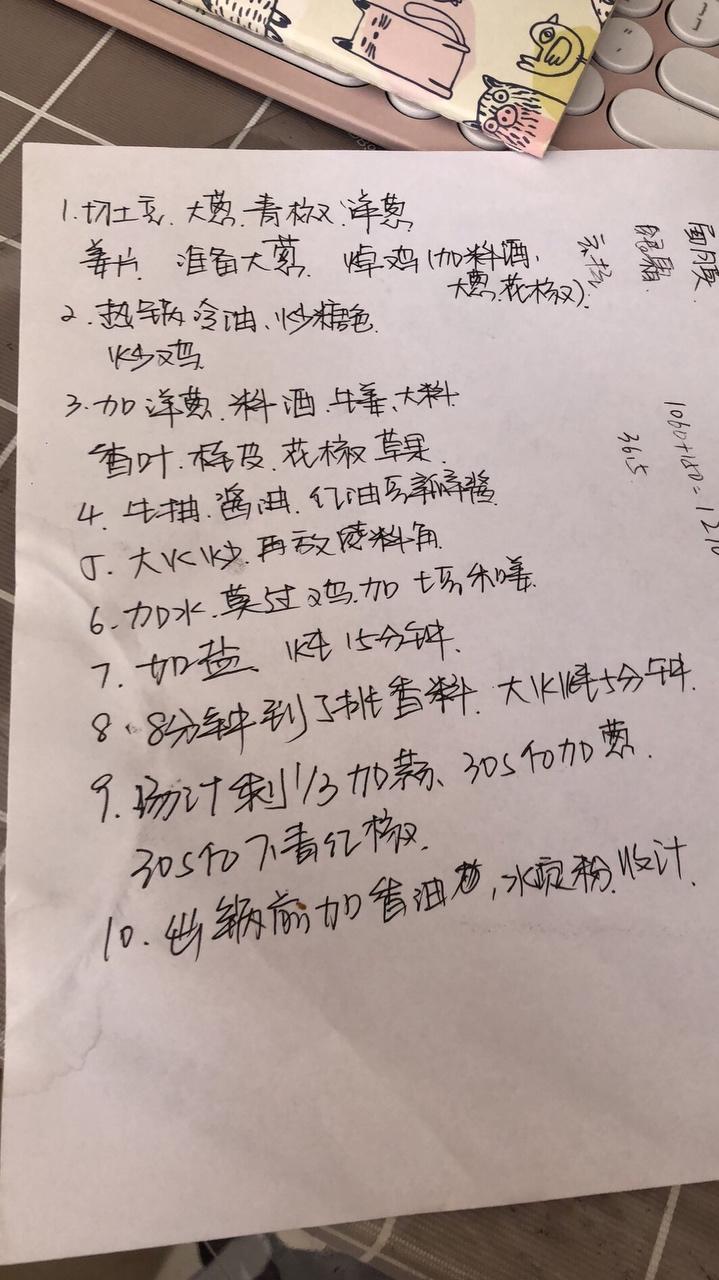 1.切土豆.大葱.青椒.洋葱
姜片 准备大葱. 焯鸡(加料酒、
大葱.花椒).
2.热锅冷油、炒糖色
炒鸡
3.加洋葱.料酒.生姜、大料
香叶.桂皮.花椒草果.
4.生抽.酱油.红油豆瓣酱
5.大火炒.再放料
6.加水.莫过鸡.加土豆和姜.
7.加盐、炖15分钟.
8.8分钟到了挑香料.大火炖5分钟.
9.汤汁剩1/3加蒜、30s后加葱.
30s后下青红椒.
10.出锅前加香油,水淀粉.收汁.
1060+150=1210
365